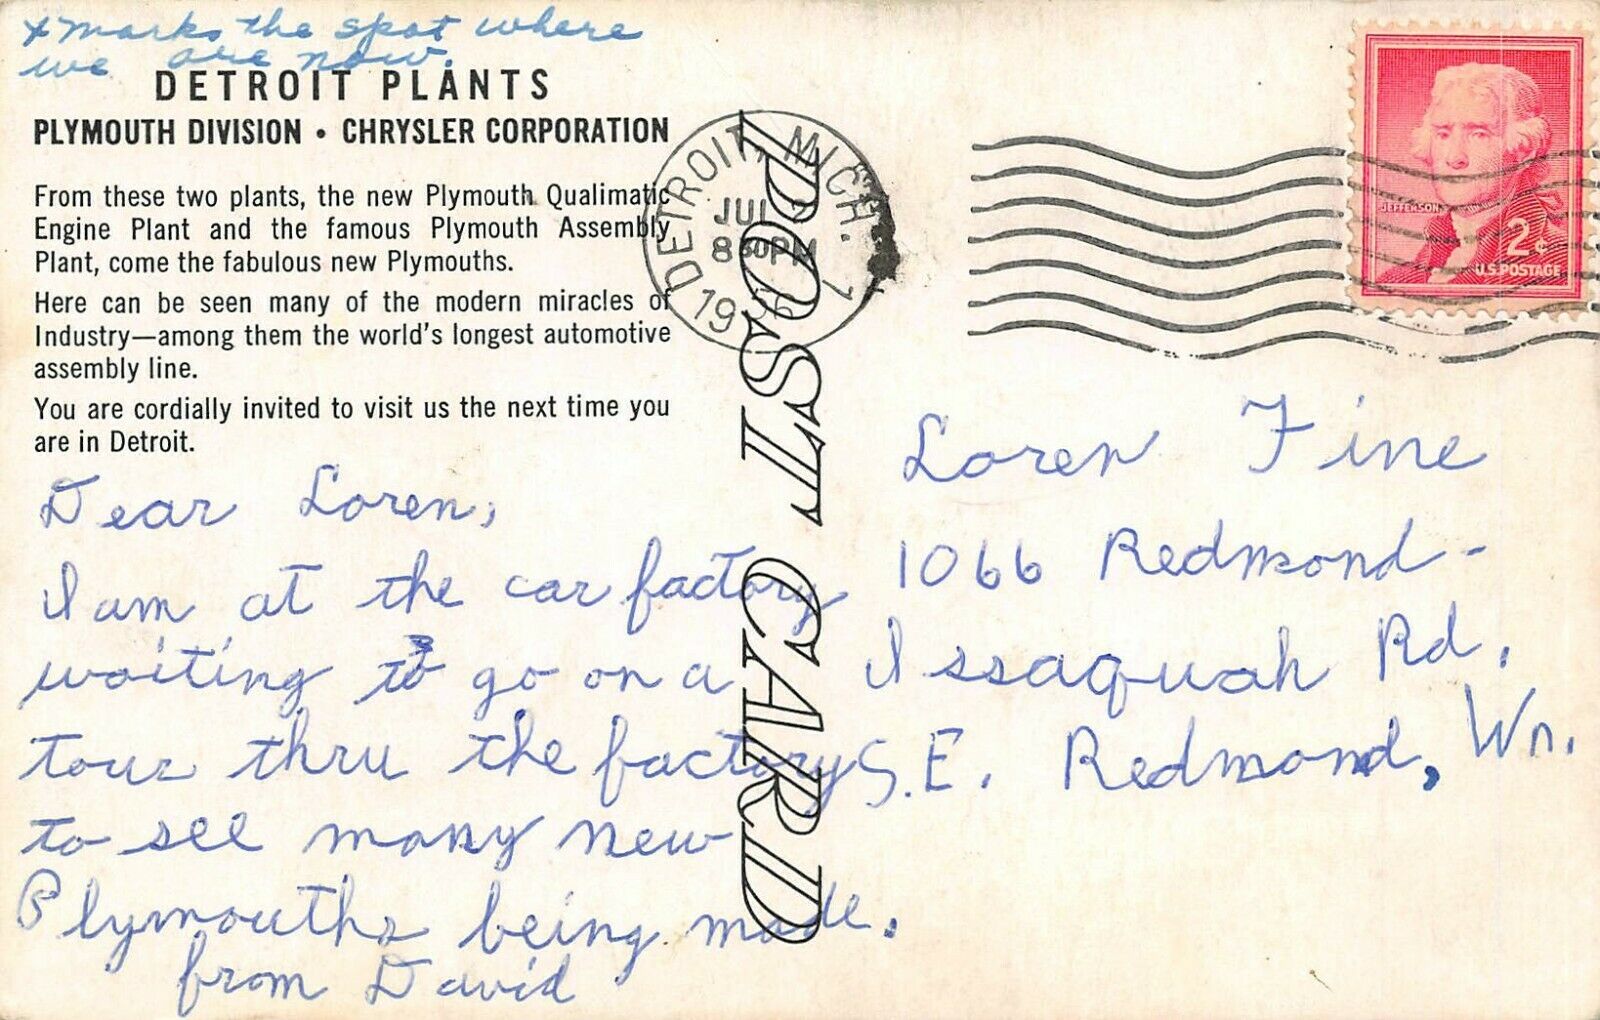 x marks the spot where
we are now.
DETROIT PLANTS
PLYMOUTH DIVISION • CHRYSLER CORPORATION
From these two plants, the new Plymouth Qualimatic
Engine Plant and the famous Plymouth Assembly
Plant, come the fabulous new Plymouths.
Here can be seen many of the modern miracles of
Industry—among them the world's longest automotive
assembly line.
You are cordially invited to visit us the next time you
are in Detroit.
Dear Loren,
I am at the car factory
waiting to go on a
tour thru the factory
to see many new
Plymouths being made.
from David
POST CARD
DETROIT, MICH. 1
JUL
8 30PM
1956
JEFFERSON
2¢
U.S. POSTAGE
Loren Fine
1066 Redmond-
Issaquah Rd.
S.E. Redmond, Wn.